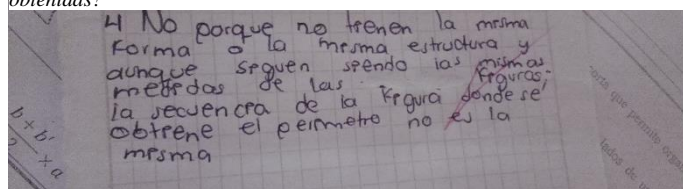 obtenidas?
4 No porque no tienen la misma
Forma o la misma estructura y
aunque siguen siendo las mismas
medidas de las figuras;
la secuencia de la Figura donde se
obtiene el perimetro no es la
misma
b + b'
2 × a
orta que permite orga
lados de